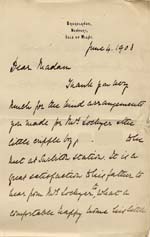 June 4. 1903
Dear Madam
Thank you very
much for the kind arrangements
you made for Mrs Lockyer & the
little cripple boy,
met at station. It is a
great satisfaction to his father to
hear from Mrs Lockyer, what a
comfortable happy home his little